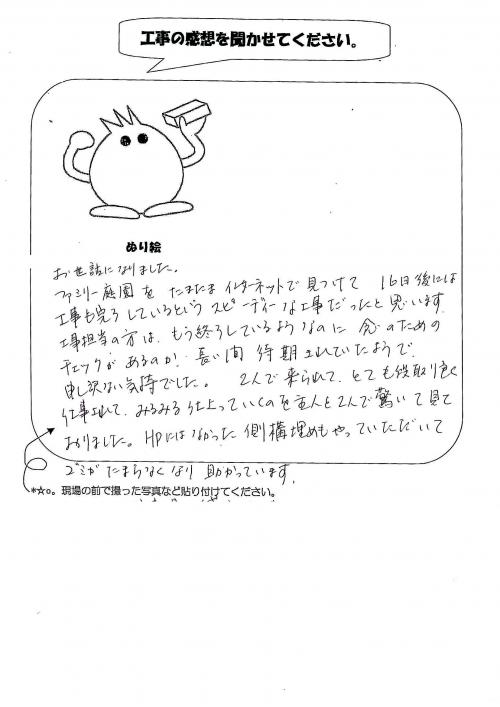 工事の感想を聞かせてください。
ぬり絵
お世話になりました。
ファミリー庭園をたまたまインターネットで見つけて 16日後には
工事も完了しているという スピーディーな工事だったと思います
工事担当の方は、もう終了しているようなのに 念のための
チェックがあるのか、長い間 待期されていたようで
申し訳ない気持でした。 2人で来られて、とても段取り良く
仕事されて、みるみる仕上っていくのを主人と2人で驚いて見て
おりました。HPにはなかった 側構埋めもやっていただいて
ゴミがたまらなくなり 助かっています。
*☆○。現場の前で撮った写真など貼り付けてください。